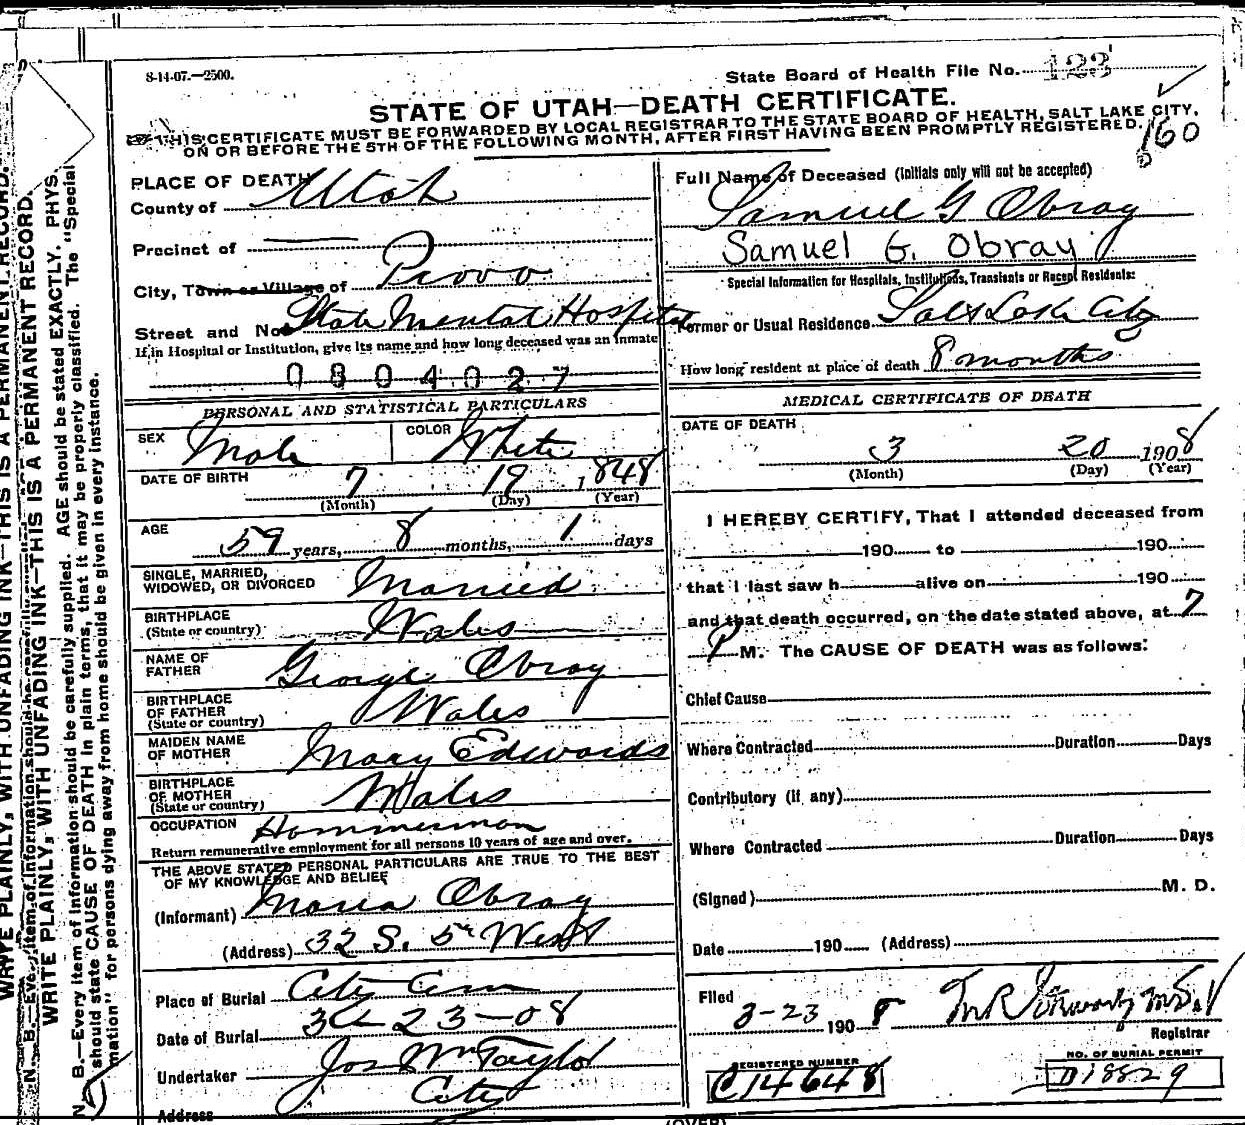 S-14-07.—2500.
State Board of Health File No. 123
STATE OF UTAH—DEATH CERTIFICATE.
THIS CERTIFICATE MUST BE FORWARDED BY LOCAL REGISTRAR TO THE STATE BOARD OF HEALTH, SALT LAKE CITY,
ON OR BEFORE THE 5TH OF THE FOLLOWING MONTH, AFTER FIRST HAVING BEEN PROMPTLY REGISTERED.
160
PLACE OF DEATH
County of Utah
Precinct of
City, Town or Village of Provo
Street and No. State Mental Hospital
If in Hospital or Institution, give its name and how long deceased was an inmate
0804027
Full Name of Deceased (Initials only will not be accepted)
Samuel G Obray
Samuel G. Obray
Special Information for Hospitals, Institutions, Transients or Recent Residents:
Former or Usual Residence Salt Lake City
How long resident at place of death 8 months
PERSONAL AND STATISTICAL PARTICULARS
SEX Male COLOR White
DATE OF BIRTH 7 19 1848
(Month) (Day) (Year)
AGE 59 years, 8 months, 1 days
SINGLE, MARRIED,
WIDOWED, OR DIVORCED Married
BIRTHPLACE
(State or country) Wales
NAME OF
FATHER George Obray
BIRTHPLACE
OF FATHER
(State or country) Wales
MAIDEN NAME
OF MOTHER Mary Edwards
BIRTHPLACE
OF MOTHER
(State or country) Wales
OCCUPATION Hammerman
Return remunerative employment for all persons 10 years of age and over.
THE ABOVE STATED PERSONAL PARTICULARS ARE TRUE TO THE BEST
OF MY KNOWLEDGE AND BELIEF
(Informant) Maria Obray
(Address) 32 S. 5th West
Place of Burial City Cem
Date of Burial 3 23-08
Undertaker Jos Wm Taylor
Address City
MEDICAL CERTIFICATE OF DEATH
DATE OF DEATH
3 20 1908
(Month) (Day) (Year)
I HEREBY CERTIFY, That I attended deceased from
190 to 190
that I last saw h alive on 190
and that death occurred, on the date stated above, at 7
P M. The CAUSE OF DEATH was as follows:
Chief Cause
Where Contracted Duration Days
Contributory (if any)
Where Contracted Duration Days
(Signed) M. D.
Date 190 (Address)
Filed 3-23 1908
Registrar
REGISTERED NUMBER
C14648
NO. OF BURIAL PERMIT
D18829
(OVER)
WRITE PLAINLY, WITH UNFADING INK—THIS IS A PERMANENT RECORD.
N. B.—Every item of information should be carefully
WRITE PLAINLY, WITH UNFADING INK—THIS IS A PERMANENT RECORD.
N. B.—Every item of information should be carefully supplied. AGE should be stated EXACTLY. PHYS
should state CAUSE OF DEATH in plain terms, that it may be properly classified. The "Special
mation" for persons dying away from home should be given in every instance.